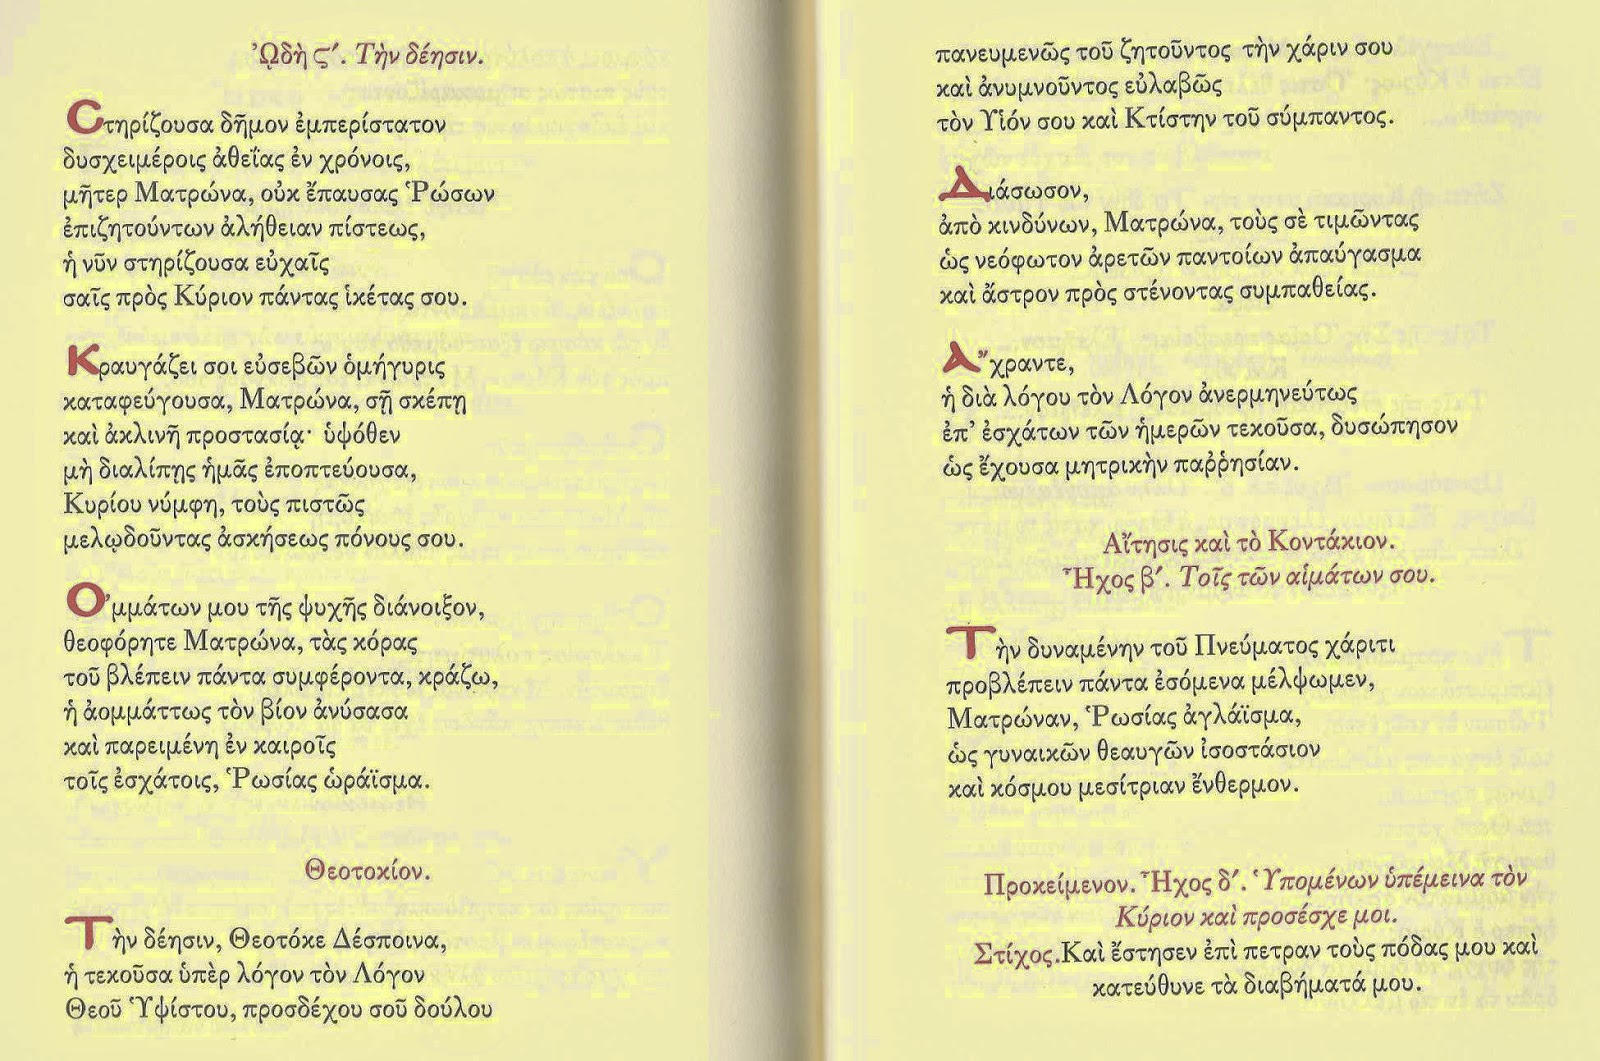 ᾨδὴ ϛ΄. Τὴν δέησιν.
Στηρίζουσα δῆμον ἐμπερίστατον
δυσχειμέροις ἀθεΐας ἐν χρόνοις,
μῆτερ Ματρώνα, οὐκ ἔπαυσας Ῥώσων
ἐπιζητούντων ἀλήθειαν πίστεως,
ἡ νῦν στηρίζουσα εὐχαῖς
σαῖς πρὸς Κύριον πάντας ἱκέτας σου.
Κραυγάζει σοι εὐσεβῶν ὁμήγυρις
καταφεύγουσα, Ματρώνα, σῇ σκέπῃ
καὶ ἀκλινῆ προστασίᾳ· ὑψόθεν
μὴ διαλίπῃς ἡμᾶς ἐποπτεύουσα,
Κυρίου νύμφη, τοὺς πιστῶς
μελῳδοῦντας ἀσκήσεως πόνους σου.
Ὀμμάτων μου τῆς ψυχῆς διάνοιξον,
θεοφόρητε Ματρώνα, τὰς κόρας
τοῦ βλέπειν πάντα συμφέροντα, κράζω,
ἡ ἀομμάττως τὸν βίον ἀνύσασα
καὶ παρειμένη ἐν καιροῖς
τοῖς ἐσχάτοις, Ῥωσίας ὡράϊσμα.
Θεοτοκίον.
Τὴν δέησιν, Θεοτόκε Δέσποινα,
ἡ τεκοῦσα ὑπὲρ λόγον τὸν Λόγον
Θεοῦ Ὑψίστου, προσδέχου σοῦ δούλου
πανευμενῶς τοῦ ζητοῦντος τὴν χάριν σου
καὶ ἀνυμνοῦντος εὐλαβῶς
τὸν Υἱόν σου καὶ Κτίστην τοῦ σύμπαντος.
Διάσωσον,
ἀπὸ κινδύνων, Ματρώνα, τοὺς σὲ τιμῶντας
ὡς νεόφωτον ἀρετῶν παντοίων ἀπαύγασμα
καὶ ἄστρον πρὸς στένοντας συμπαθείας.
Ἄχραντε,
ἡ διὰ λόγου τὸν Λόγον ἀνερμηνεύτως
ἐπ’ ἐσχάτων τῶν ἡμερῶν τεκοῦσα, δυσώπησον
ὡς ἔχουσα μητρικὴν παῤῥησίαν.
Αἴτησις καὶ τὸ Κοντάκιον.
Ἦχος β΄. Τοῖς τῶν αἱμάτων σου.
Τὴν δυναμένην τοῦ Πνεύματος χάριτι
προβλέπειν πάντα ἐσόμενα μέλψωμεν,
Ματρώναν, Ῥωσίας ἀγλάϊσμα,
ὡς γυναικῶν θεαυγῶν ἰσοστάσιον
καὶ κόσμου μεσίτριαν ἔνθερμον.
Προκείμενον. Ἦχος δ΄. Ὑπομένων ὑπέμεινα τὸν
Κύριον καὶ προσέσχε μοι.
Στίχος.Καὶ ἔστησεν ἐπὶ πετραν τοὺς πόδας μου καὶ
κατεύθυνε τὰ διαβήματά μου.